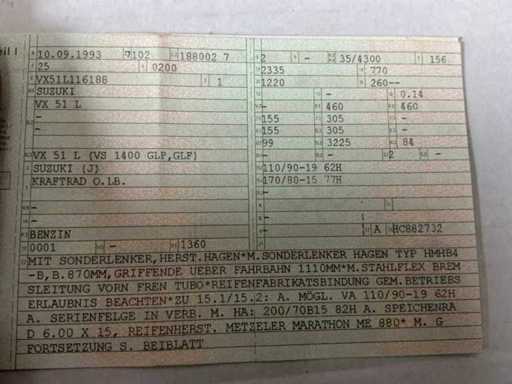 10.09.1993 7102 188002 7 2 - 35/4300 156
25 0200 2335 770
VX51L116188 1 1220 260--
SUZUKI - 0.14
VX 51 L - 460 460
- 155 305 -
155 305 -
99 3225 84
VX 51 L (VS 1400 GLP,GLF) - 2 -
SUZUKI (J) 110/90-19 62H
KRAFTRAD O.LB. 170/80-15 77H
- - -
- -
BENZIN A HC882732
0001 - 1360
MIT SONDERLENKER, HERST.HAGEN*M.SONDERLENKER HAGEN TYP HMHB4
-B,B.870MM,GRIFFENDE UEBER FAHRBAHN 1110MM*M.STAHLFLEX BREM
SLEITUNG VORN FREN TUBO*REIFENFABRIKATSBINDUNG GEM.BETRIEBS
ERLAUBNIS BEACHTEN*ZU 15.1/15.2: A. MÖGL. VA 110/90-19 62H
A. SERIENFELGE IN VERB. M. HA: 200/70B15 82H A. SPEICHENRA
D 6.00 X 15, REIFENHERST. METZELER MARATHON ME 880* M. G
FORTSETZUNG S. BEIBLATT